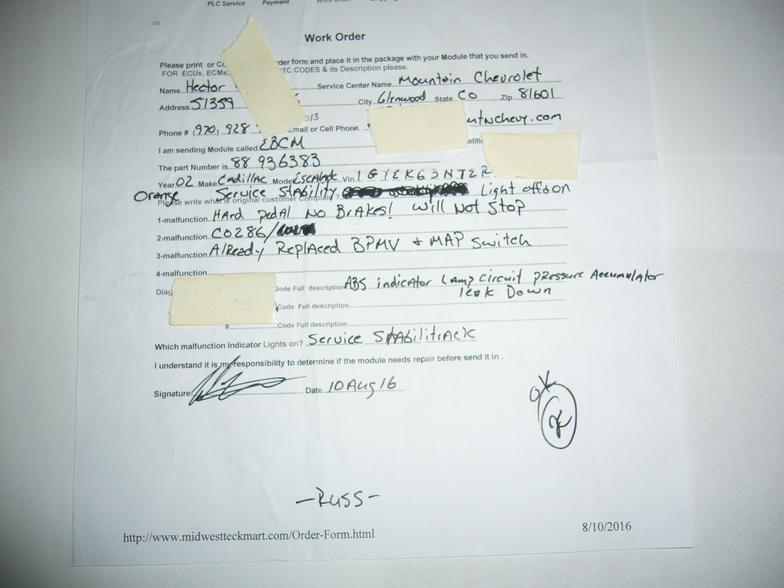 PLC Service Payment
Work Order
Please print or Co der form and place it in the package with your Module that you send in.
FOR ECUs, ECMs, TC CODES & its Description please.
Name Hector Service Center Name Mountain Chevrolet
Address 51359 City Glenwood State Co Zip 81601
Phone # (970) 928 013 mail or Cell Phone. ntnchevy.com
I am sending Module called EBCM
The part Number is 88 936383
Year 02 Make Cadillac Model Escalade Vin 1GYEK63N72R
Orange Service Stability Light off&on
Please write what is original customer Complaint?
1-malfunction HARD pedal NO BrAKes! Will NoT STop
2-malfunction C0286/
3-malfunction Already Replaced BPMV & MAP Switch
4-malfunction
Diag ode Full description ABS indicator Lamp Circuit pressure Accumulator
leak Down
Code Full description
Code Full description
Which malfunction Indicator Lights on? Service Stabilitrack
I understand it is my responsibility to determine if the module needs repair before send it in.
Signature: Date 10Aug16
OK
-Russ-
http://www.midwestteckmart.com/Order-Form.html 8/10/2016